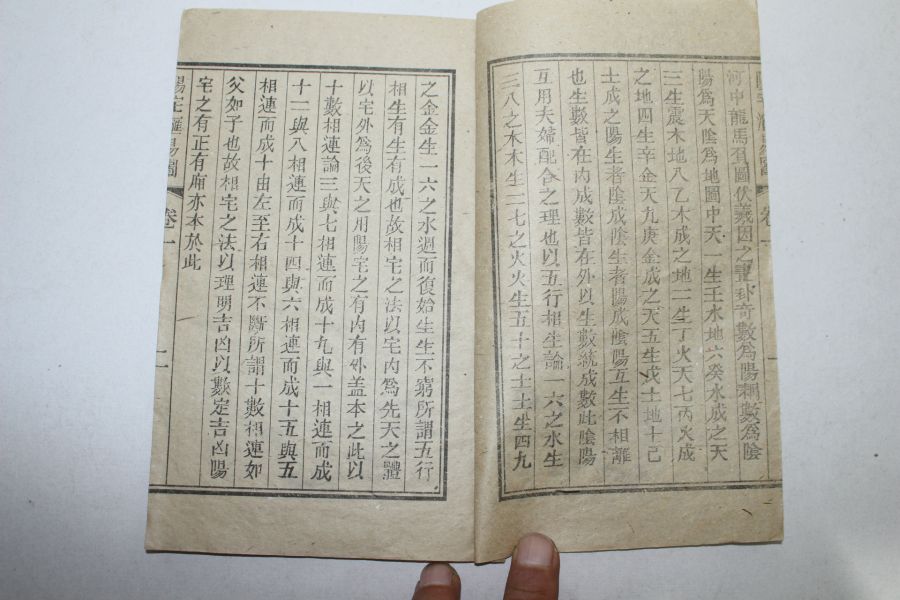 河中龍馬負圖伏羲因之畫卦奇數爲陽耦數爲陰
陽爲天陰爲地圖中天一生壬水地六癸水成之天
三生震木地八乙木成之地二生丁火天七丙火成
之地四生辛金天九庚金成之天五生戊土地十己
土成之陽生者陰成陰生者陽成陰陽互生不相離
也生數皆在內成數皆在外以生數統成數此陰陽
互用夫婦配合之理也以五行相生論一六之水生
三八之木木生二七之火火生五十之土土生四九
之金金生一六之水週而復始生生不窮所謂五行
相生有生有成也故相宅之法以宅內爲先天之體
以宅外爲後天之用陽宅之有內有外盖本之此以
十數相連論三與七相連而成十九與一相連而成
十二與八相連而成十四與六相連而成十五與五
相連而成十由左至右相連不斷所謂十數相連如
父如子也故相宅之法以理明吉凶以數定吉凶陽
宅之有正有廂亦本於此
陽宅 易圖
卷一
二